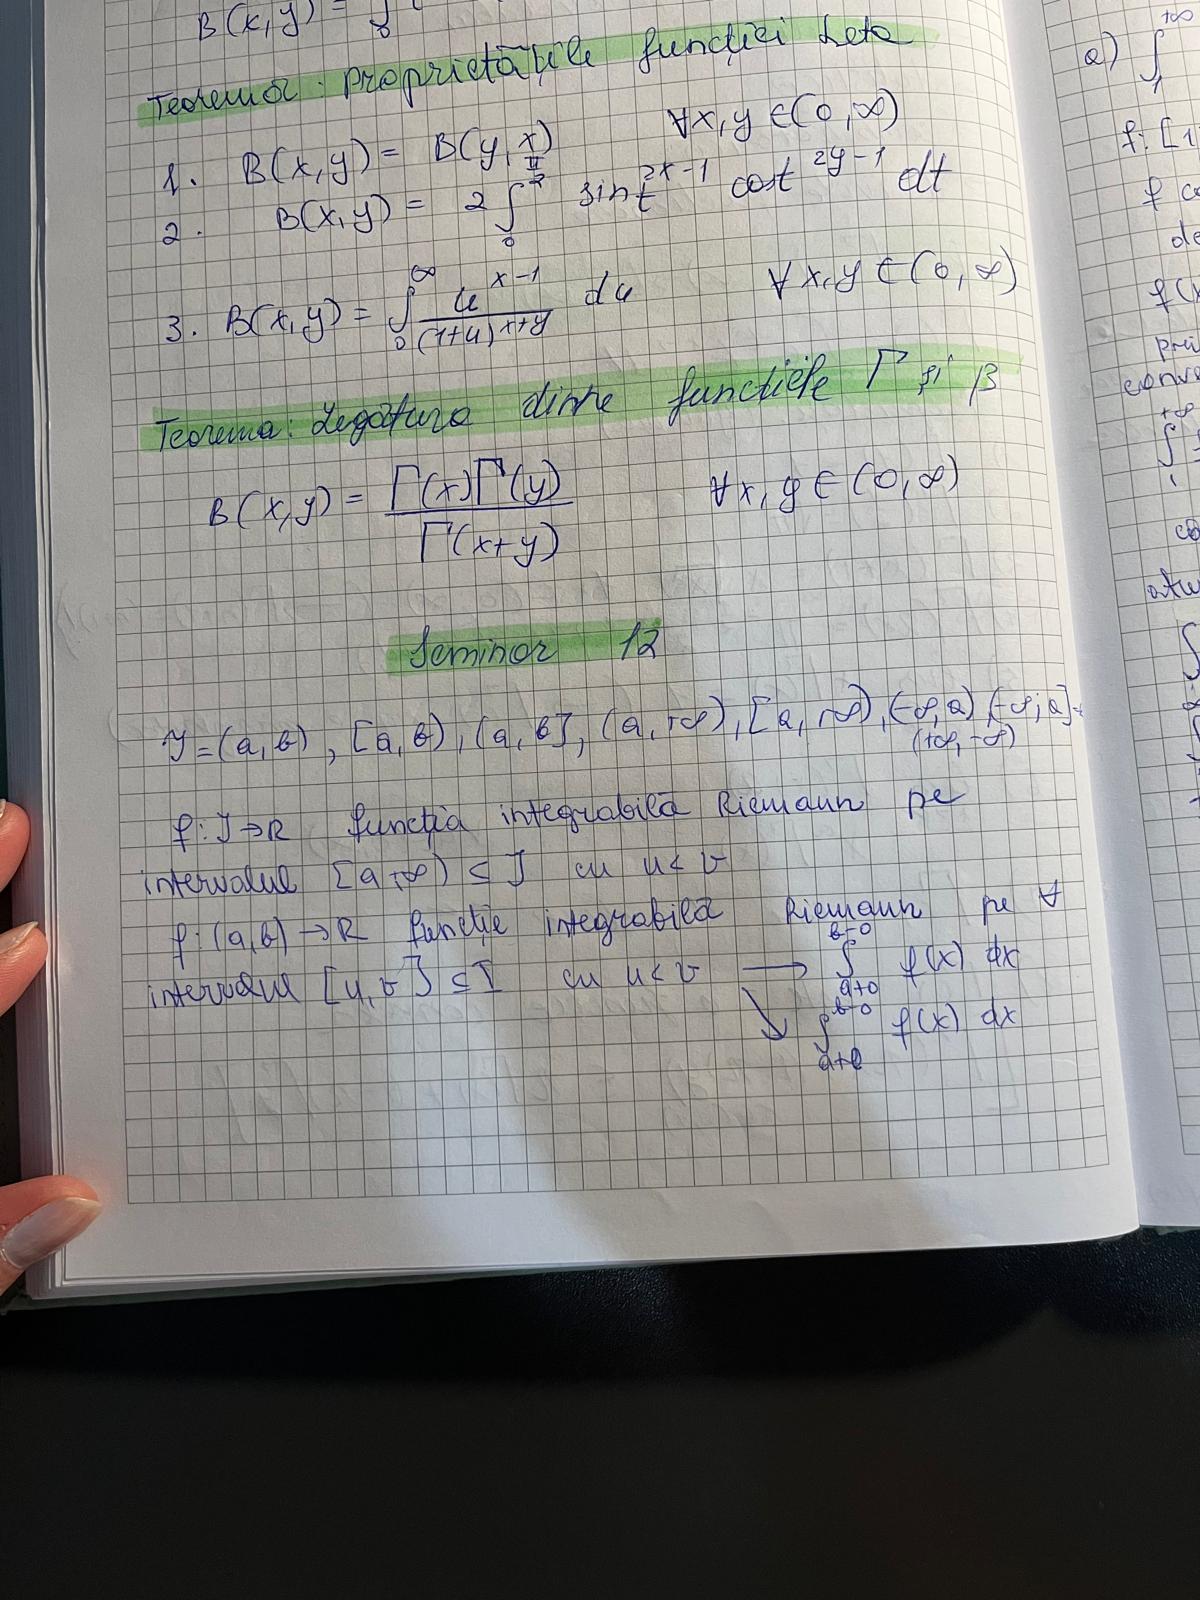 B(x,y) = ∫
Teorema: Proprietățile funcției beta
1. B(x,y) = B(y,x) ∀x,y ∈ (0,∞)
2. B(x,y) = 2 ∫_0^{π/2} sin t^{2x-1} cos t^{2y-1} dt
3. B(x,y) = ∫_0^∞ u^{x-1}/(1+u)^{x+y} du ∀x,y ∈ (0,∞)
Teorema: Legătura dintre funcțiile Γ și β
B(x,y) = Γ(x)Γ(y)/Γ(x+y) ∀x,y ∈ (0,∞)
Seminar 12
J = (a,b), [a,b), (a,b], (a,+∞), [a,+∞), (-∞,a), (-∞,a],
(+∞,-∞)
f: J→R funcția integrabilă Riemann pe
intervalul [a,+∞) ⊆ J cu u<v
f: (a,b)→R funcție integrabilă Riemann pe ∀
intervalul [u,v] ⊆ I cu u<v → ∫_{a+0}^{b-0} f(x) dx
↘ ∫_{a+0}^{b-0} f(x) dx
a) ∫_1^{+∞}
f: [1
f co
de
f(x
conve
+∞
∫